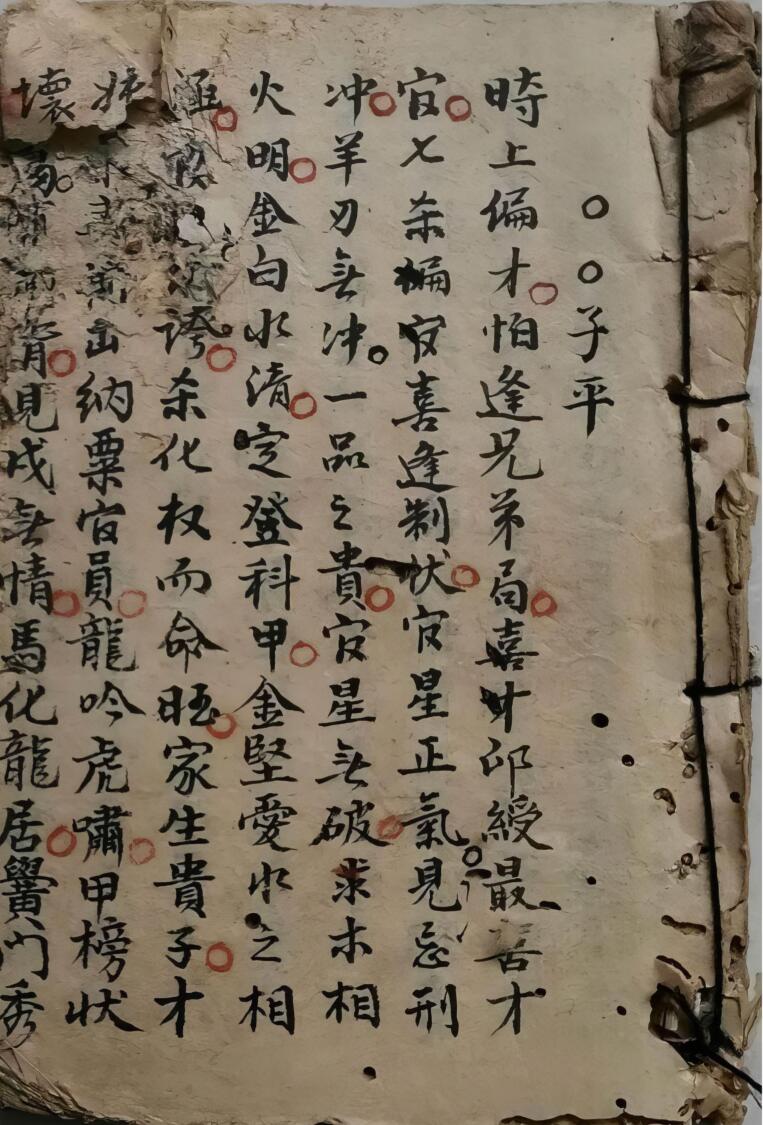 子平
時上偏才怕逢兄弟局喜廿卯綬最害才
官七杀偏官喜逢制伏官星正氣見忌刑
冲羊刃無冲一品之貴官星無破求木相
火明金白水清定登科甲金堅愛水之相
涵誇杀化权而命旺家生貴子才
出納粟官員龍吟虎嘯甲榜状
壞見戌無情馬化龍居黌门秀